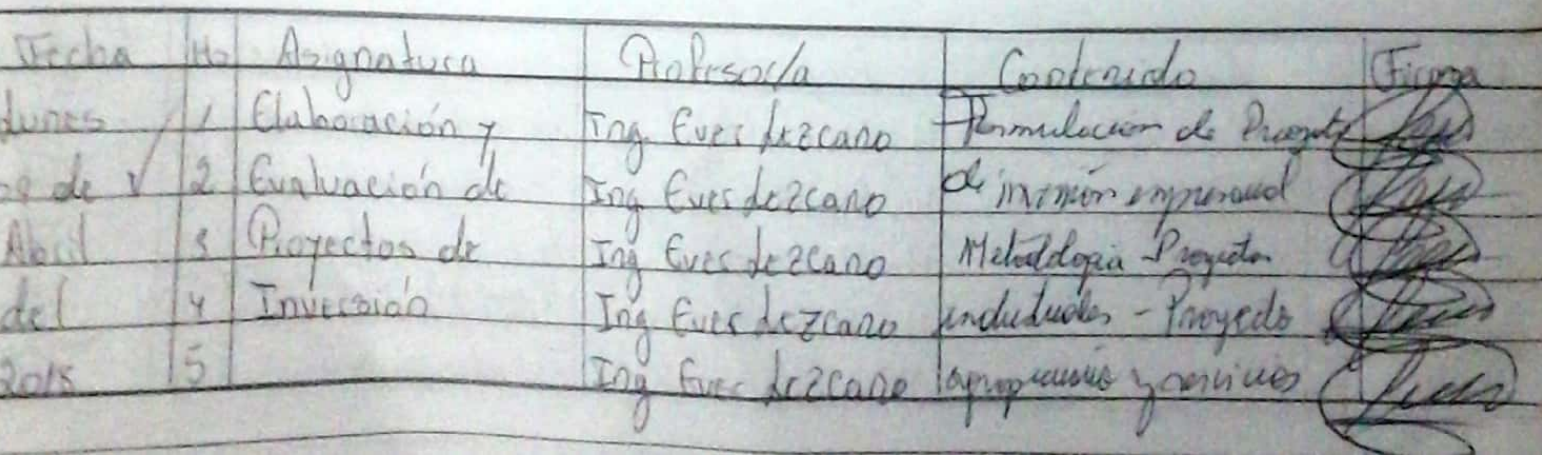 Fecha Hs Asignatura Profesor/a Contenido Firma
Lunes 1 Elaboración y Ing. Ever Lezcano Formulación de Proyecto
de 2 Evaluación de Ing. Ever Lezcano de empresarial
Abril 3 Proyectos de Ing Ever Lezcano Metodologia Proyectos
del 4 Inversión Ing Ever Lezcano industriales - Proyecto
2018 5 Ing Ever Lezcano agropecuario y servicios